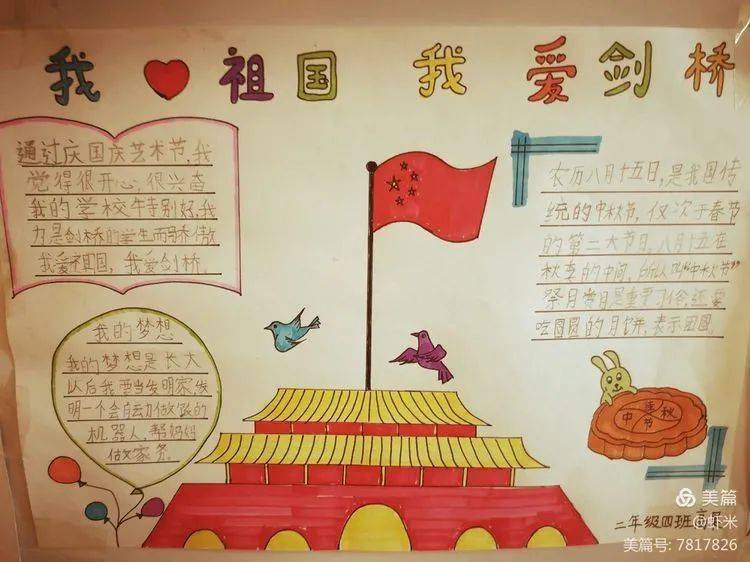 我 祖国 我 爱剑桥
通过庆国庆艺术节,我
觉得很开心,很兴奋
我的学校特别好,我
力是剑桥的学生而骄傲
我爱祖国,我爱剑桥。
我的梦想
我的梦想是长大
以后我要当发明家,发
明一个会自动做饭的
机器人,帮妈妈
做家务。
农历八月十五日,是我国传
统的中秋节,仅次于春节
的第二大节日,八月十五在
秋季的中间,所以叫"中秋节"
祭月赏月是重要习俗还要
吃圆圆的月饼,表示团圆.
中秋
佳节
二年级四班
美篇
@虾米
美篇号: 7817826